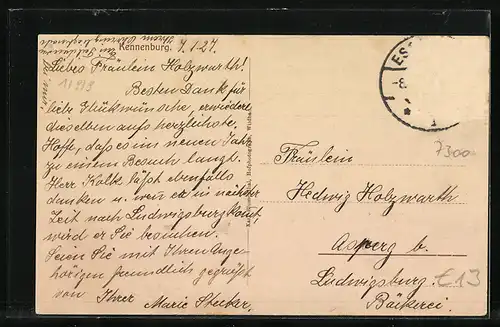 Kennenburg. 7.1.27.
Liebes Fräulein Holzwarth!
Besten Dank für
liebe Glückwünsche, erwiedere
dieselben aufs herzlichste,
Hoffe, daß es im neuen Jahr
zu einem Besuch langt.
Herr Kolk läßt ebenfalls
danken u. wen er in nächster
Zeit nach Ludwigsburg komt,
wird er Sie besuchen.
Seien Sie mit Ihren Ange-
hörigen freundlich gegrüßt
von Ihrer Marie
ES
-8.
7300
Fräulein
Hedwig Holzwarth
Asperg b.
Ludwigsburg.
Bäckerei.
€13